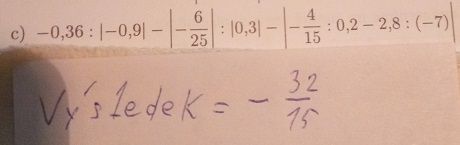 c) −0,36 : |−0,9| − |−6/25| : |0,3| − |−4/15 : 0,2 − 2,8 : (−7)|
Výsledek = − 32/15